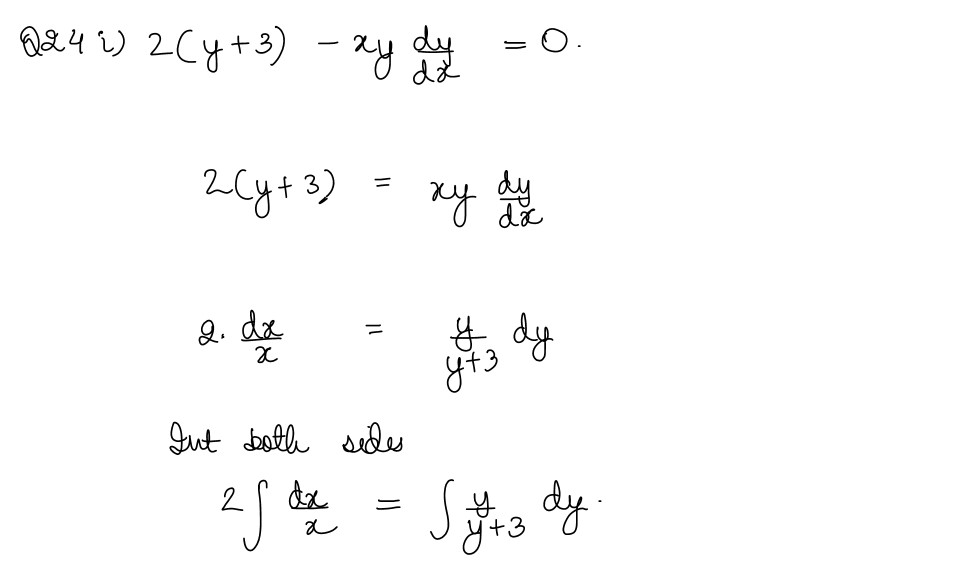 Q24 i) 2(y+3) - xy dy/dx = 0.
2(y+3) = xy dy/dx
2. dx/x = y/y+3 dy
Int both sides
2∫ dx/x = ∫ y/y+3 dy.